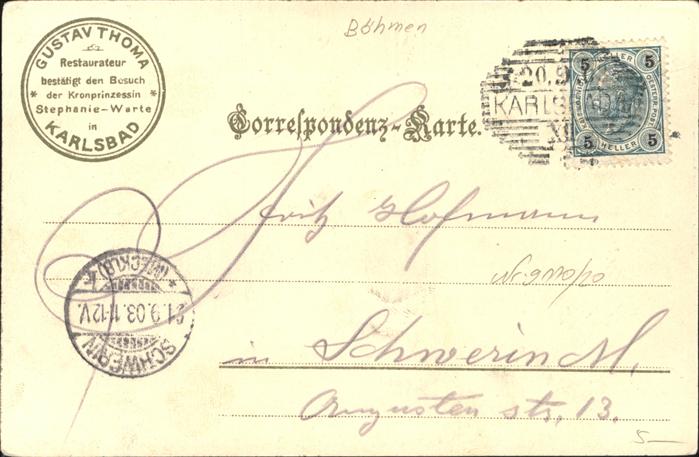 Böhmen
GUSTAV THOMA
Restaurateur
bestätigt den Besuch
der Kronprinzessin
Stephanie-Warte
in
KARLSBAD
Correspondenz-Karte.
20.9
KARLSBAD
5 HELLER 5
5 HELLER 5
Fritz Hofmann
in Schwerin M.
Augusten str. 13.
SCHWERIN
21.9.03.11-12V.
(MECKLB)
5